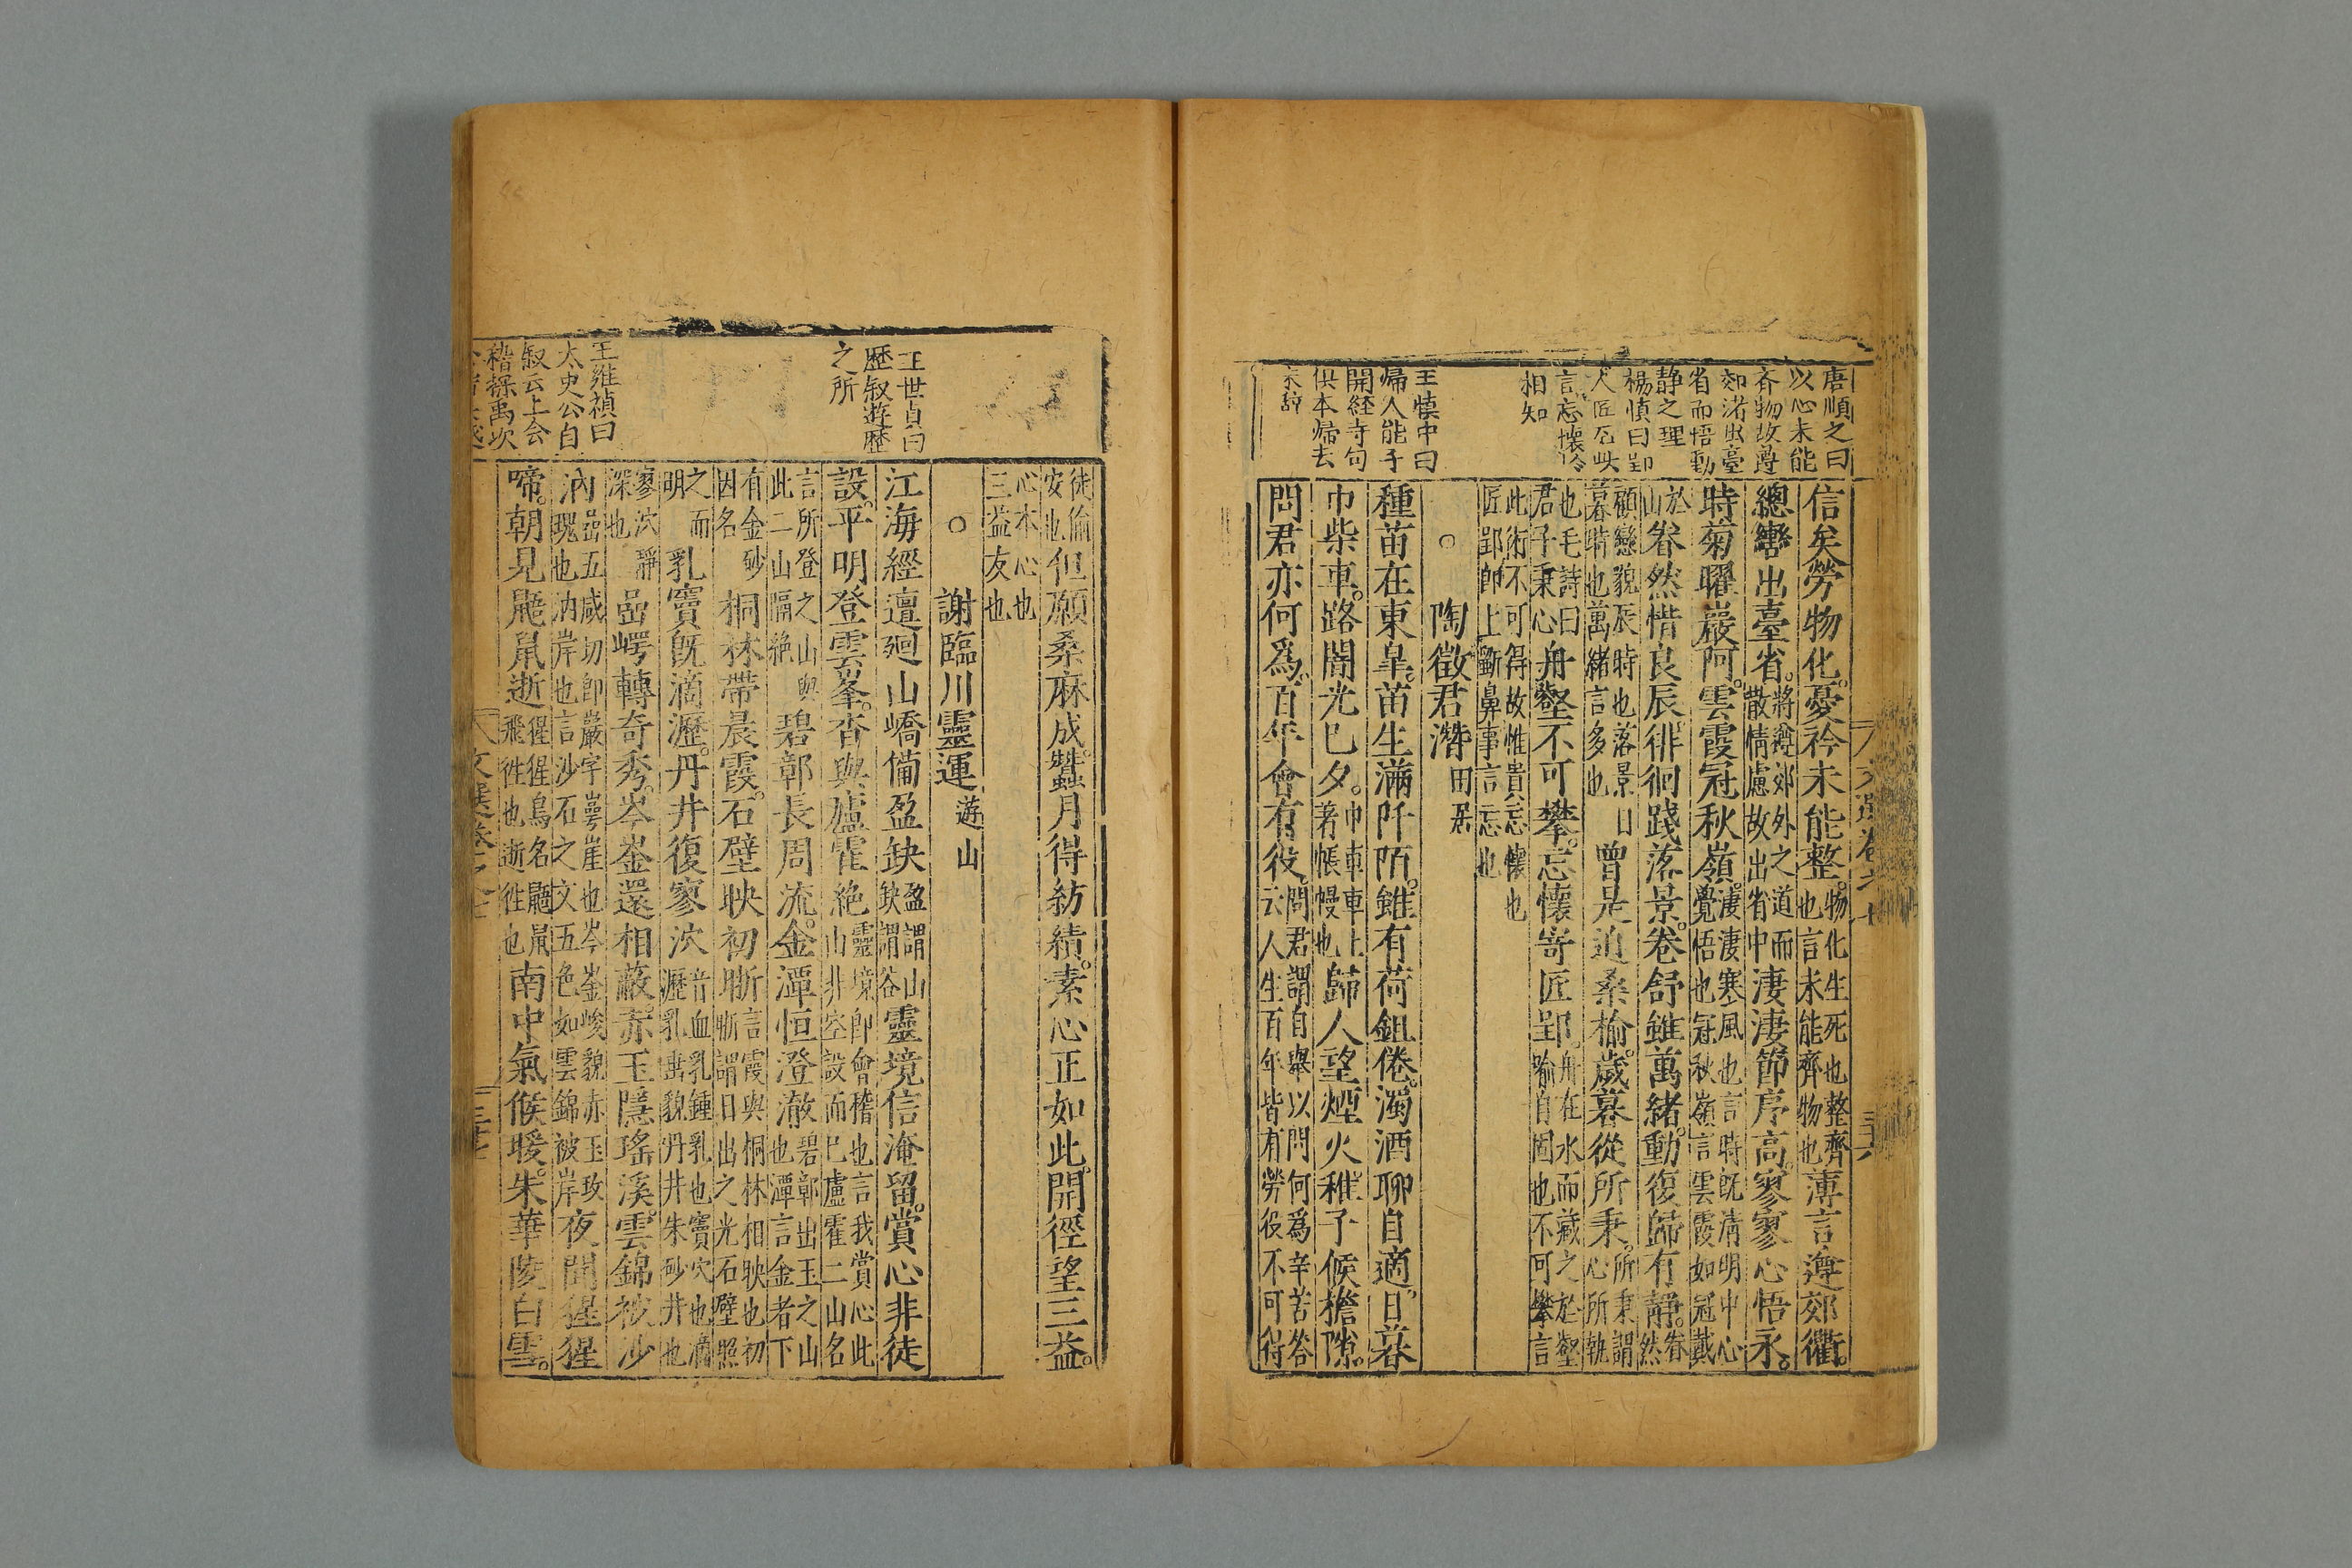 唐順之曰
以心未能
齊物故遵
郊渚出臺
省而悟動
靜之理
楊慎曰郢
人匠石
言忘懷冷
相知
王慎中曰
歸人能子
開経寺句
供本歸去
来辭
信矣勞物化。憂衿未能整。物化生死也整齊也言未能齊物也薄言遵郊衢。
總轡出臺省。將遵郊外之道而散情慮故出省中淒淒節序高。寥寥心悟永。
時菊曜巖阿。雲霞冠秋嶺。淒淒寒風也言時既清明中心覺悟也冠秋嶺言雲霞如冠戴
於山眷然惜良辰。徘徊踐落景。卷舒雖萬緒。動復歸有靜。眷然
顧戀貌辰時也落景日暮時也萬緒言多也曾是迫桑榆。歲暮從所秉。所秉謂心所執
也毛詩曰君子秉心舟壑不可攀。忘懷寄匠郢。舟在水而藏之於壑喻自固也不可攀言
此術不可得故惟貴忘懷也匠郢即上斷鼻事言忘也
○陶徵君潛田居
種苗在東皐。苗生滿阡陌。雖有荷鉏倦。濁酒聊自適。日暮
巾柴車。路闇光已夕。巾車車上著帳幔也歸人望煙火。稚子候檐隙。
問君亦何爲。百年會有役。問君謂自舉以問何爲辛苦答云人生百年皆有勞役不可得
文選卷十六
王世貞曰
歷叙遊歷
之所
王維禎曰
太史公自
叙云上会
稽探禹穴
徒倫安也但願桑麻成。蠶月得紡績。素心正如此。開徑望三益。
心本心也三益友也
○謝臨川靈運遊山
江海經邅廻。山嶠備盈缺。盈謂山缺謂谷靈境信淹留。賞心非徒
設。平明登雲峯。杳與廬霍絶。靈境即會稽也言我賞心此山非空設而已廬霍二山名
言所登之山與此二山隔絶碧鄣長周流。金潭恒澄澈。碧鄣出玉之山也潭言金者下
有金砂因名桐林帶晨霞。石壁映初晰。言霞與桐林相映也初晰謂日出之光石壁照
之而明乳竇既滴瀝。丹井復寥泬。音血乳鍾乳也竇穴也滴瀝乳出貌丹井朱砂井也
寥泬靜深也嵒崿轉奇秀。岑崟還相蔽。赤玉隱瑤溪。雲錦被沙
汭。嵒五咸切即巖字崿崖也岑崟峻貌赤玉玫瑰也汭岸也言沙石之文五色如雲錦被岸夜聞猩猩
啼。朝見鼯鼠逝。猩猩鳥名鼯鼠飛徃也逝徃也南中氣候暖。朱華陵白雪。
文選卷十六